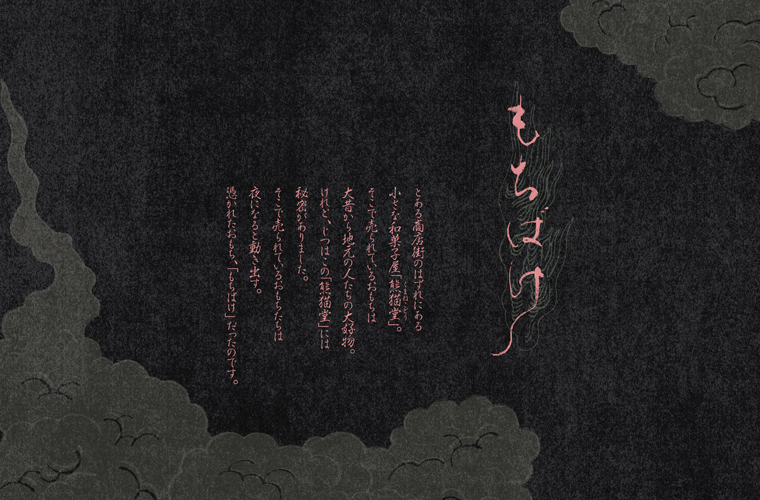 もちばけ
とある商店街のはずれにある
小さな和菓子屋「熊猫堂」。
そこで売られているおもちは
大昔から地元の人たちの大好物。
けれど、じつはこの「熊猫堂」には
秘密がありました。
そこで売られているおもちたちは
夜になると動き出す。
憑かれたおもち、「もちばけ」だったのです。